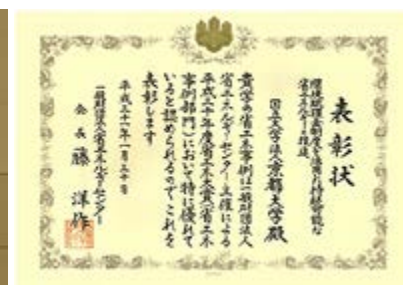 表彰状
環境賦課金制度を活用した持続可能な
省エネルギー推進
国立大学法人京都大学殿
貴学の省エネ事例は一般財団法人
省エネルギーセンター主催による
平成三十年度省エネ大賞(省エネ
事例部門)において特に優れて
いると認められるのでこれを
表彰します
平成三十一年一月三十日
一般財団法人省エネルギーセンター
会長 藤 洋作